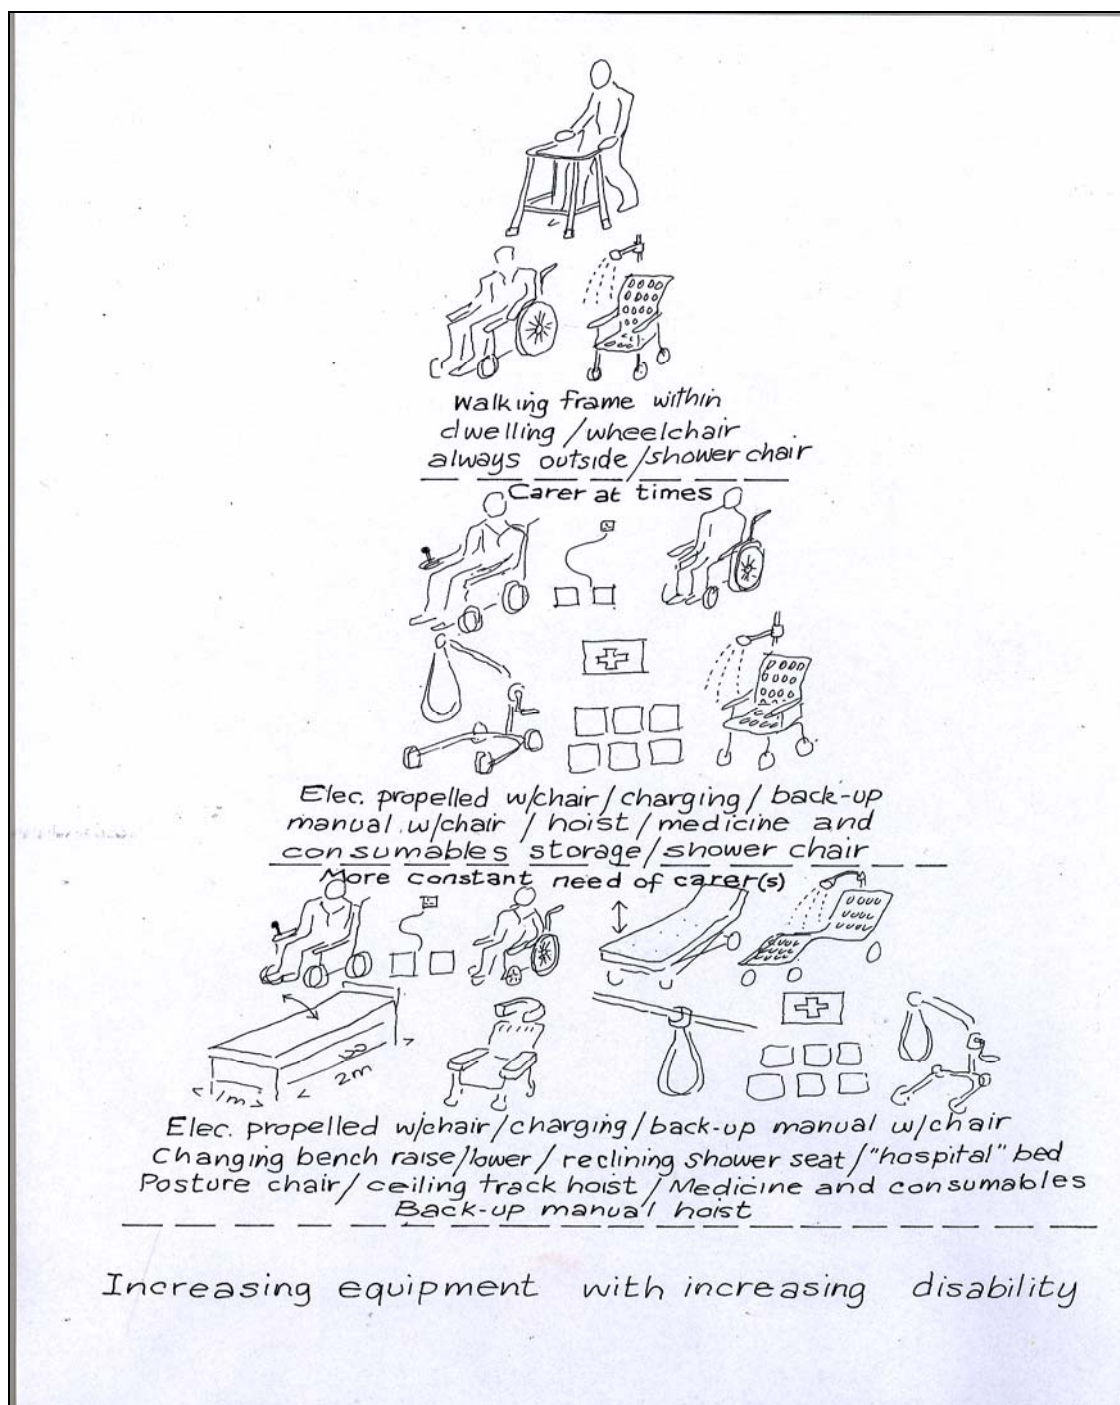 Walking frame within
dwelling / wheelchair
always outside / shower chair
Carer at times
Elec. propelled w/chair / charging / back-up
manual w/chair / hoist / medicine and
consumables storage / shower chair
More constant need of carer(s)
2m
1m
Elec. propelled w/chair / charging / back-up manual w/chair
Changing bench raise/lower / reclining shower seat / "hospital" bed
Posture chair / ceiling track hoist / Medicine and consumables
Back-up manual hoist
Increasing equipment with increasing disability